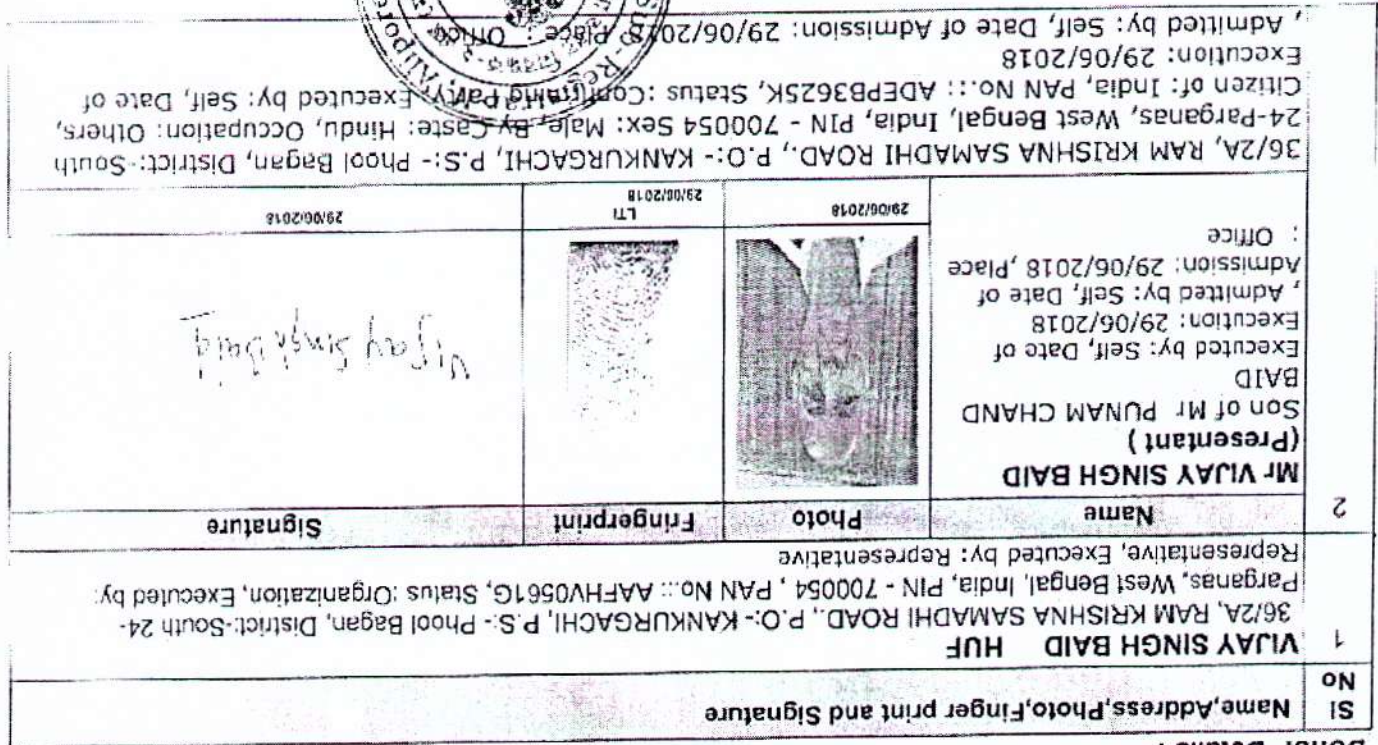 Sl No
Name,Address,Photo,Finger print and Signature
1
VIJAY SINGH BAID HUF
36/2A, RAM KRISHNA SAMADHI ROAD., P.O:- KANKURGACHI, P.S:- Phool Bagan, District:-South 24-
Parganas, West Bengal, India, PIN - 700054 , PAN No.:: AAFHV0561G, Status :Organization, Executed by:
Representative, Executed by: Representative
2
Name Photo Fringerprint Signature
Mr VIJAY SINGH BAID
(Presentant )
Son of Mr PUNAM CHAND
BAID
Executed by: Self, Date of
Execution: 29/06/2018
, Admitted by: Self, Date of
Admission: 29/06/2018 ,Place
: Office
Vijay Singh Baid
29/06/2018
LTI
29/06/2018
29/06/2018
36/2A, RAM KRISHNA SAMADHI ROAD., P.O:- KANKURGACHI, P.S:- Phool Bagan, District:-South
24-Parganas, West Bengal, India, PIN - 700054 Sex: Male, By Caste: Hindu, Occupation: Others,
Citizen of: India, PAN No.:: ADEPB3625K, Status :Confirming Party, Executed by: Self, Date of
Execution: 29/06/2018
, Admitted by: Self, Date of Admission: 29/06/2018 ,Place : Office